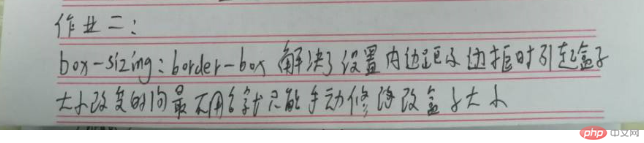 作业二：
box-sizing：border-box 解决了设置内边距及边框时引起盒子
大小改变的问题 不用它就只能手动修改盒子大小
php 中文网